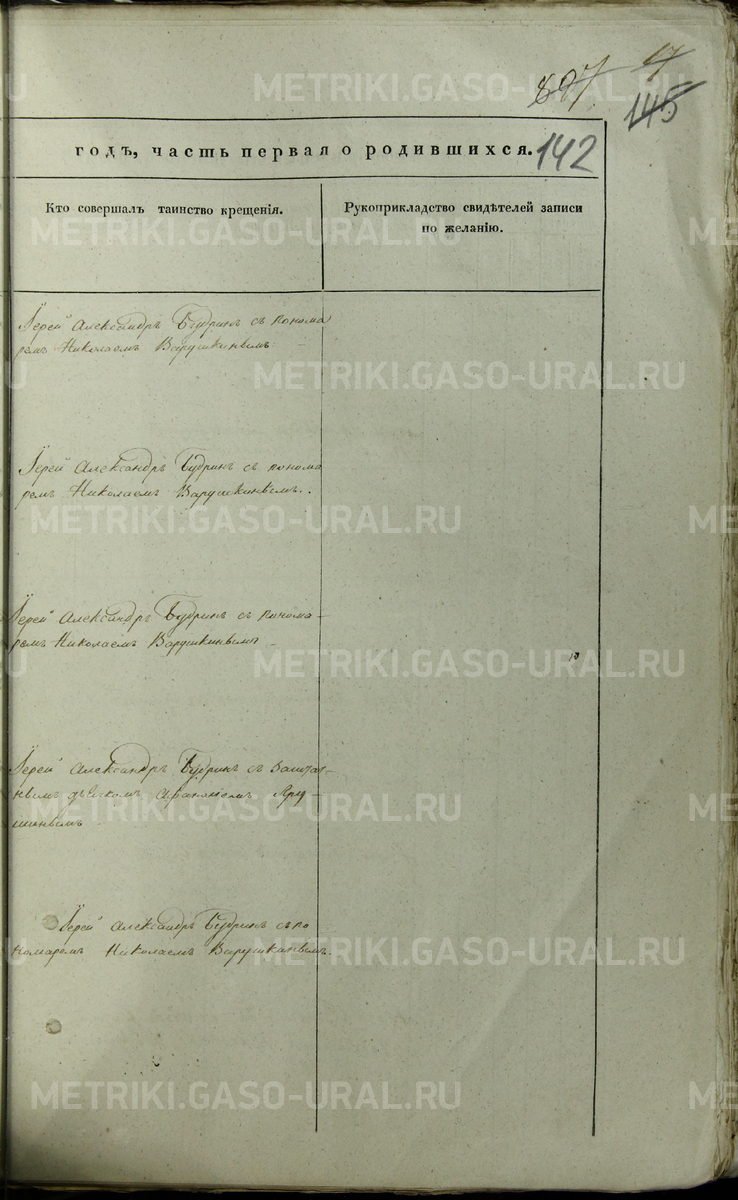 897 17
145
годъ, часть первая о родившихся. 142
Кто совершалъ таинство крещенія.
Рукоприкладство свидѣтелей записи
по желанію.
Іерей Александръ Будринъ съ понома
ремъ Николаемъ Варушкинымъ
Іерей Александръ Будринъ съ понома
ремъ Николаемъ Варушкинымъ.
Іерей Александръ Будринъ съ понома-
ремъ Николаемъ Варушкинымъ
Іерей Александръ Будринъ съ
дьячкомъ
Іерей Александръ Будринъ съ по
номаремъ Николаемъ Варушкинымъ.
METRIKI.GASO-URAL.RU